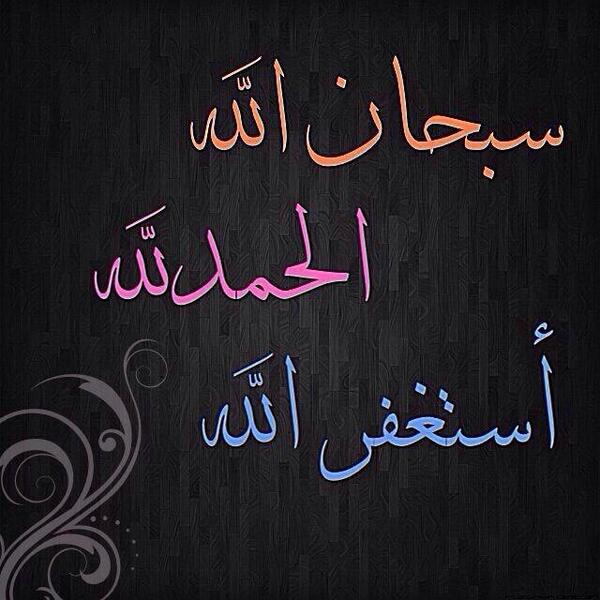 سبحان الله
الحمدلله
أستغفر الله